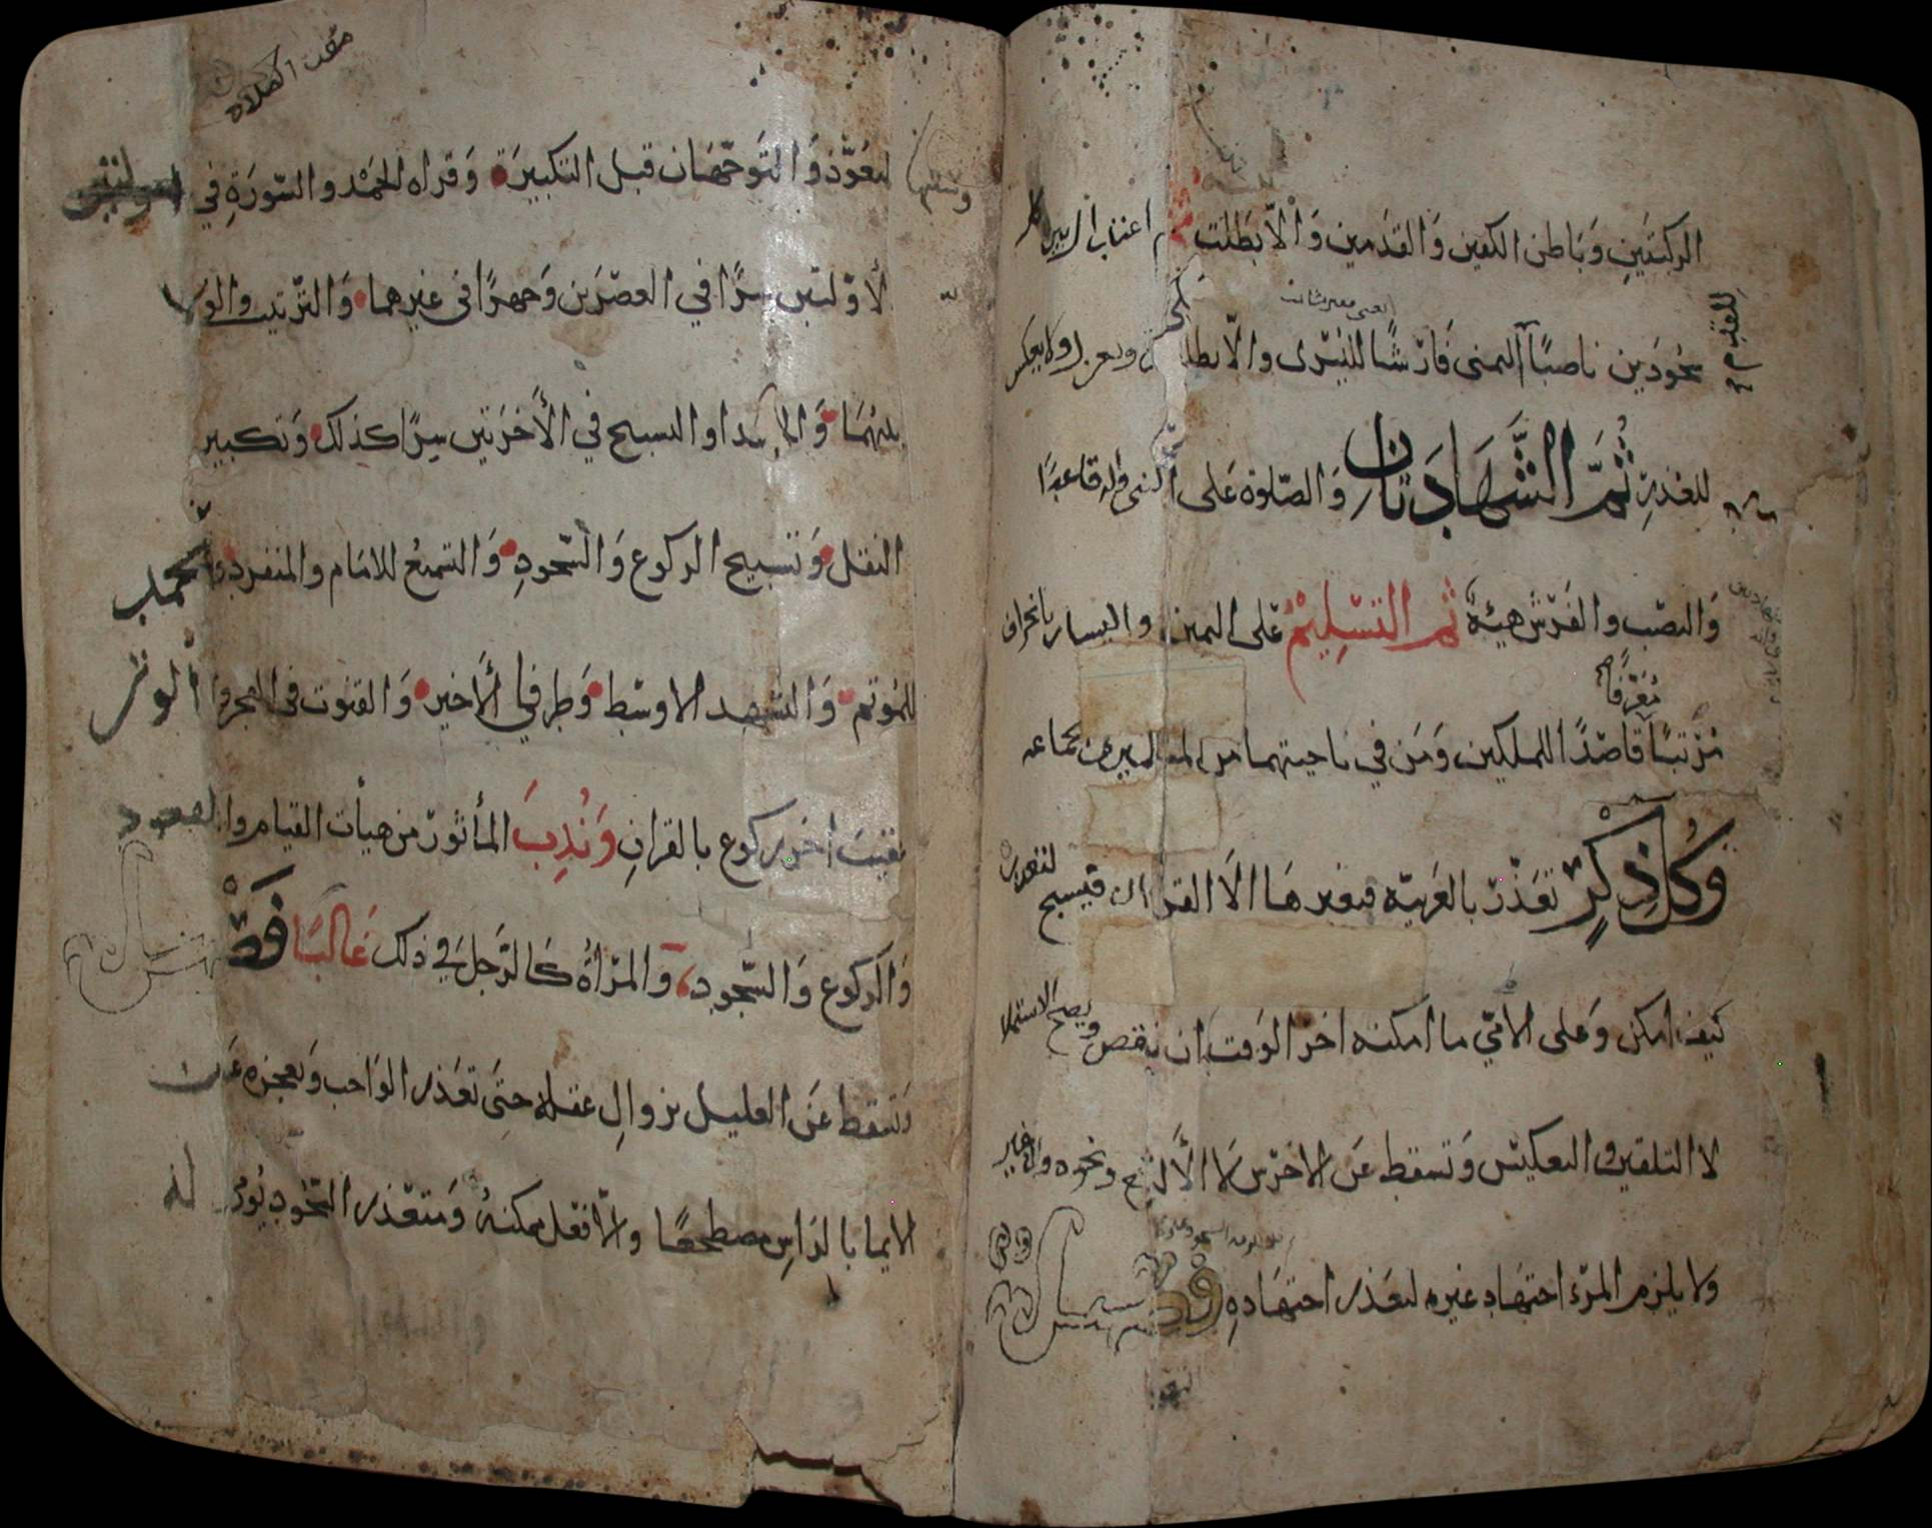 الركبتين وباطن الكفين والقدمين والا بطلت
سجودين ناصبًا اليمنى فارشًا لليسرى والا بطلت
للعذر ثُمَّ الشَّهَادَتَانِ والصلوة على النبي واله قاعدًا
والنصب والفرش هيئة ثم التسليم على اليمين واليسار بانحراف
مُعَرِّفًا
مرتبًا قاصدًا للملكين ومن في ناحيتهما من المسلمين جماعه
وَكُلُّ ذِكْرٍ تعذّر بالعربيّه فبغيرها الا القران فيسبح لتعذره
كيف امكن وعلى الامّيّ ما امكنه اخر الوقت ان نقص ويصح الاستملا
لا التلقين والتعكيس وتسقط عن الاخرس لا الالثغ ونحوه وان غير
ولا يلزم المرء اجتهاد غيره لتعذر اجتهاده
الصلاه
وسننها
التعوّذ والتوجّهان قبل التكبيرة وقراه الحمد والسّورة في
الأوّلتين سرًا في العصرين وجهرًا في غيرهما والترتيب والولا
بينهما والحمد او التسبيح في الأخرتين سِرًا كذلك وتكبير
النقل وتسبيح الركوع والسّجود والتسميع للامام والمنفرد والحمد
للمؤتم والتشهد الاوسط وطرفي الأخير والقنوت في الفجر والوتر
عقيب اخر ركوع بالقران وَنُدِبَ المأثور من هيأت القيام والقعود
والركوع والسّجود والمرأة كالرجل في ذلك غالبًا فصل
وتسقط عن العليل بزوال عقله حتى تعذر الواجب وبعجزه عن
الايما بالراس مضطجعًا والّا فعل ممكنه ومتعذر السّجود يومي له